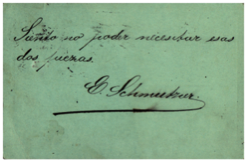 Siento no poder necesitar esas
dos piezas.
E. Schmutzer